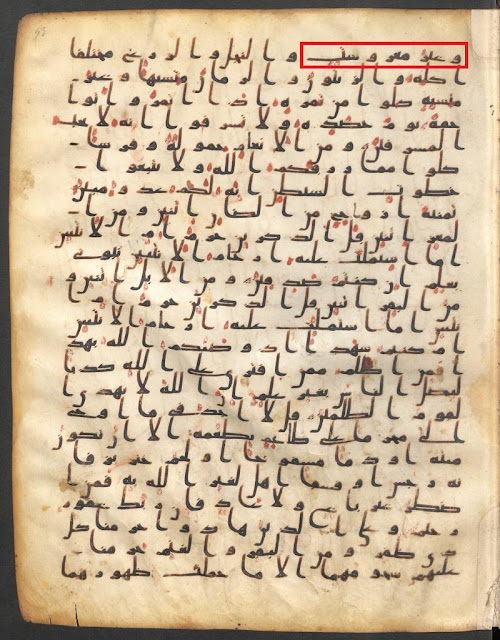 وغير معروشت والنخل والزرع مختلفا
اكله والزيتون والرمان متشبها وغير
متشبه كلوا من ثمره اذا اثمر واتوا
حقه يوم حصده ولا تسرفوا انه لا يحب
المسرفين ومن الانعم حمولة وفرشا
كلوا مما رزقكم الله ولا تتبعوا
خطوت الشيطن انه لكم عدو مبين
ثمنية ازواج من الضان اثنين ومن ا
لمعز اثنين قل الذكرين حرم ام الانثيين
اما اشتملت عليه ارحام الانثيين نبوني
بعلم ان كنتم صدقين ومن الابل اثنين و
من البقر اثنين قل الذكرين حرم ام الا
نثيين اما اشتملت عليه ارحام الانثيين
ام كنتم شهدا اذ وصيكم الله بهذ
ا فمن اظلم ممن افترى على الله كذبا
ليضل الناس بغير علم ان الله لا يهدي ا
لقوم الظلمين قل لا اجد في ما اوحي
الي محرما على طاعم يطعمه الا ان يكون
ميتة او دما مسفوحا او لحم خنزير فا
نه رجس او فسقا اهل لغير الله به فمن ا
ضطر غير باغ ولا عاد فان ربك غفور
رحيم وعلى الذين هادوا حرمنا كل
ذي ظفر ومن البقر والغنم حرمنا
عليهم شحومهما الا ما حملت ظهورهما